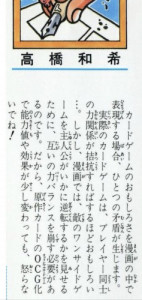 高橋和希
カードゲームのおもしろさを漫画で
表現する場合、ひとつの矛盾が生じます。
実際のカードゲームは、プレイヤー同士
の力関係が拮抗すればするほどおもしろい
…。しかし、漫画では、敵のワンサイドゲ
ームを主人公がいかに逆転するかを見せる
ために、互いの力バランスを崩す必要があ
るのです。だから、原作カードのOCG化
で能力値や効果が少し変わっても、怒らな
いでね！